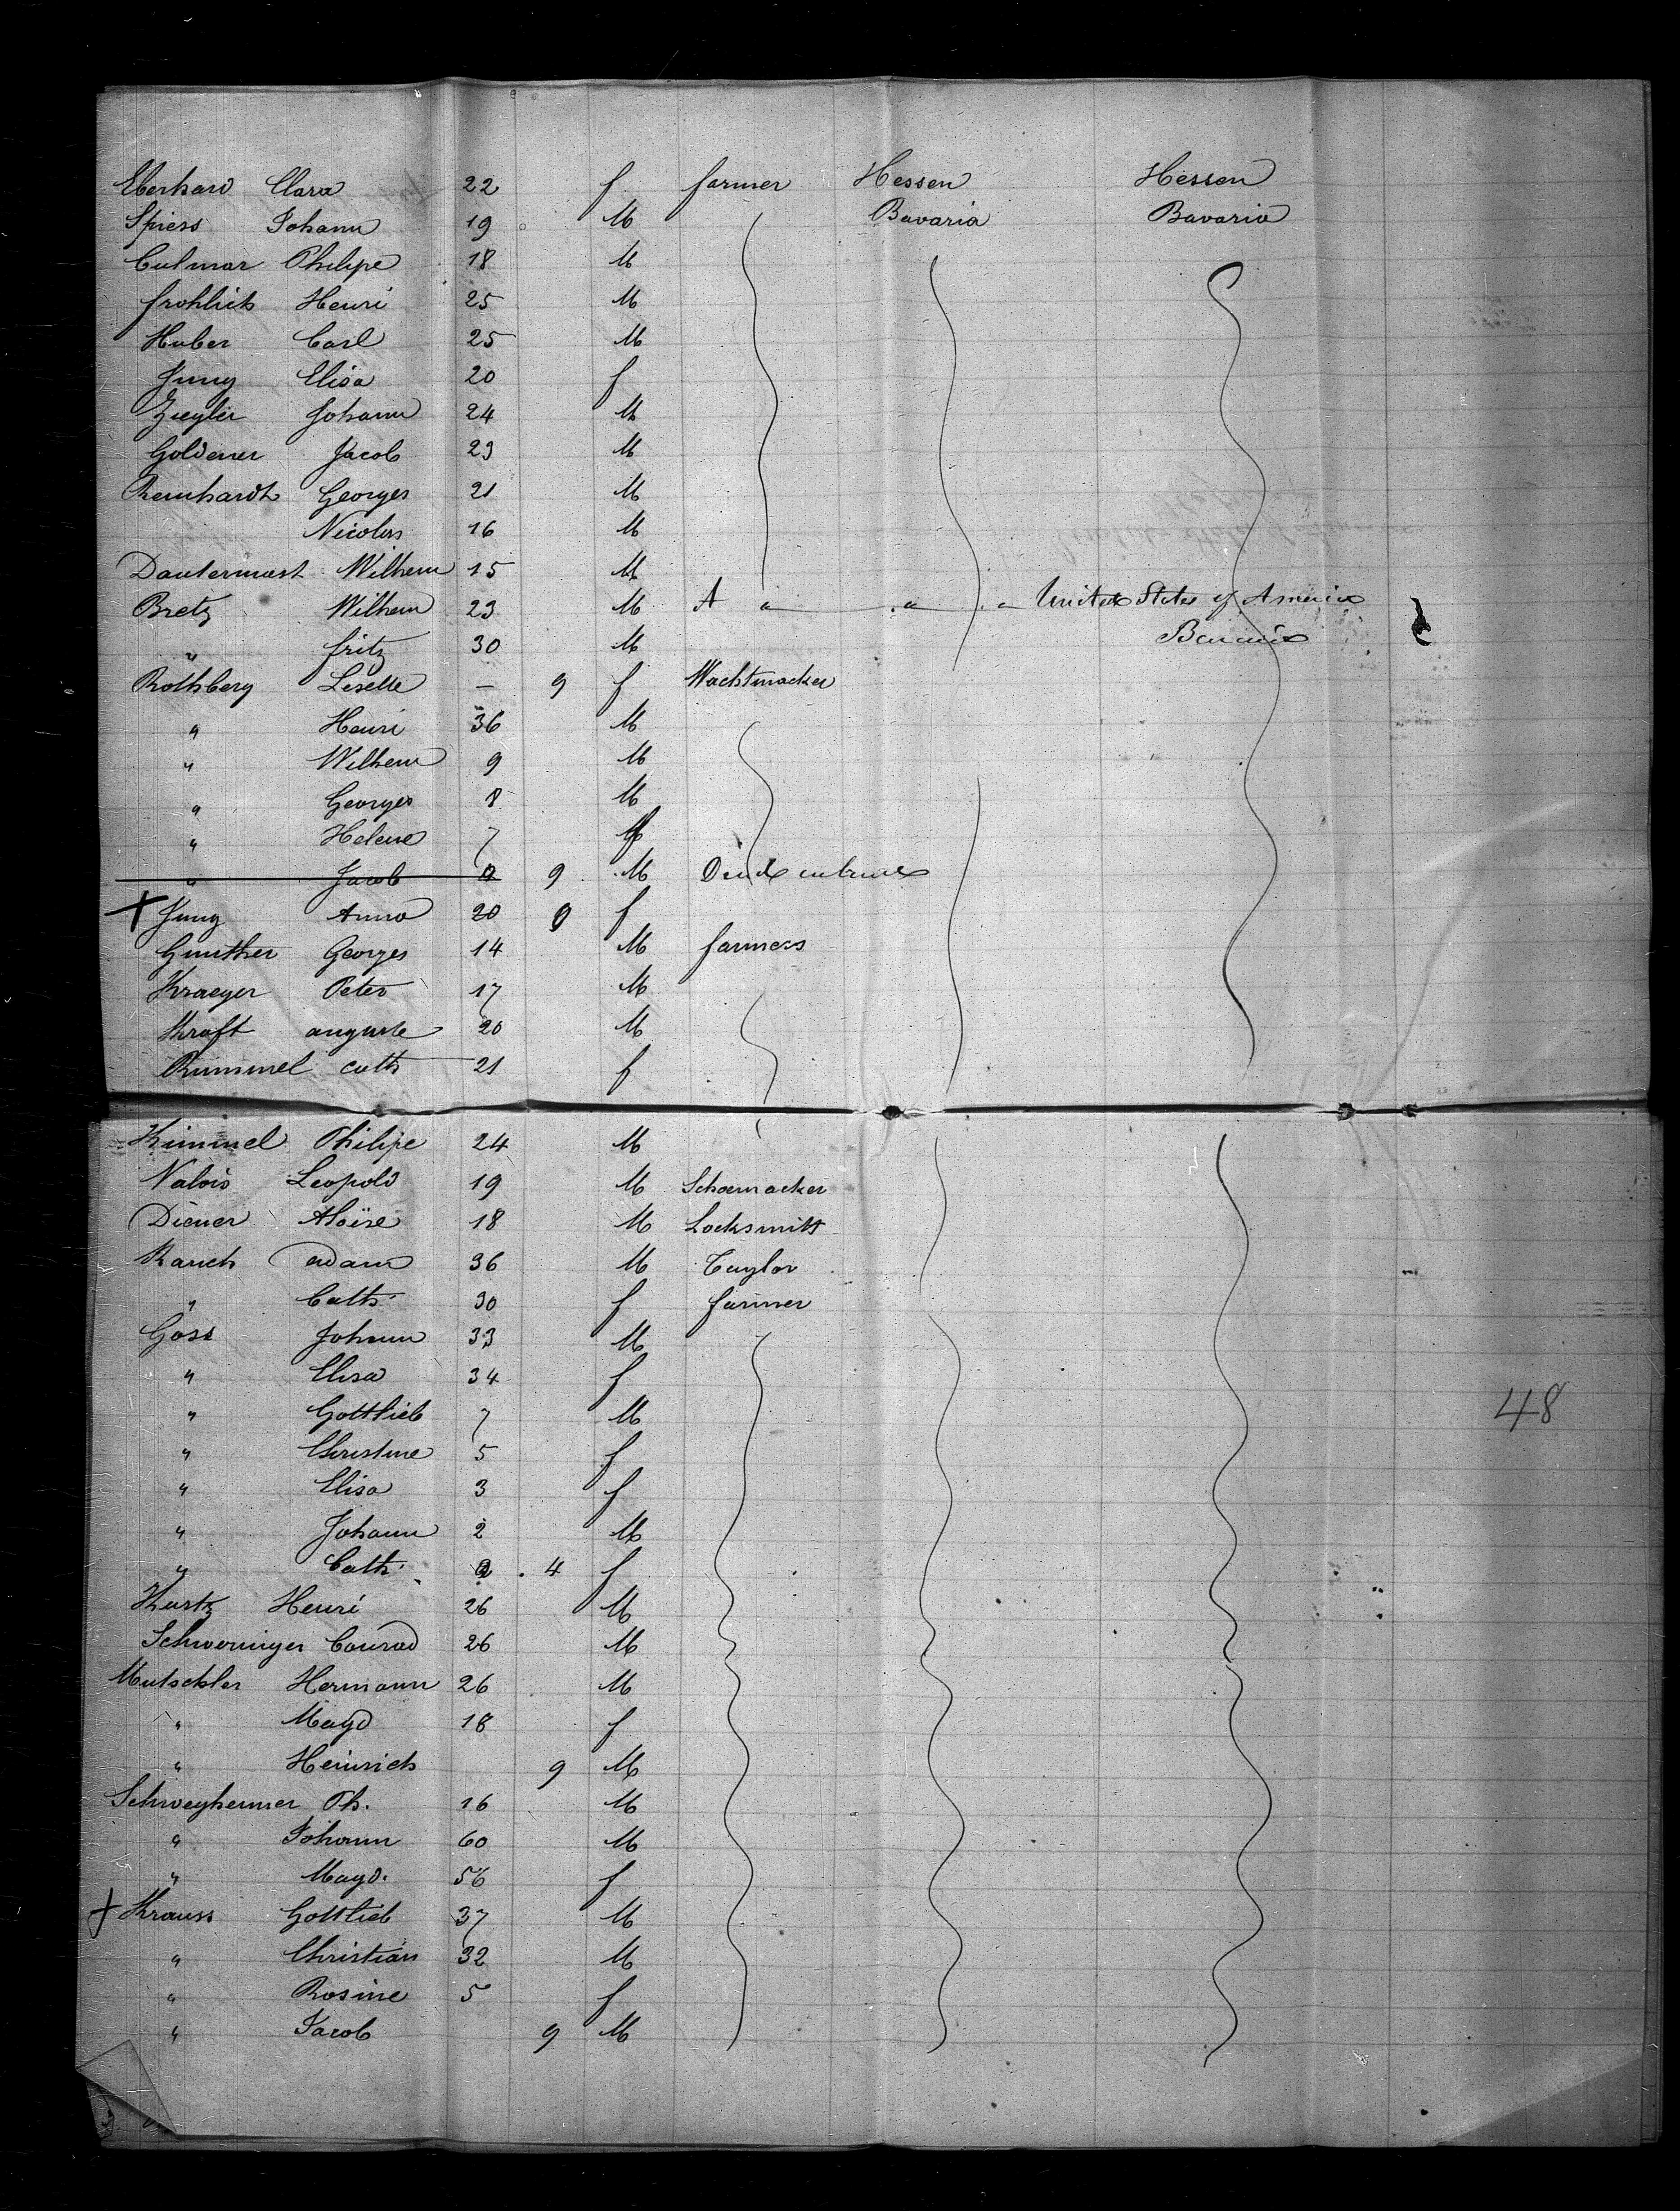 Eberhard Clara 22 f farmer Hessen Hessen
Spiess Johann 19 M Bavaria Bavaria
Culmar Philipe 18 M
frohlich Henri 25 M
Huber Carl 25 M
Jung Elisa 20 f
Ziegler Johann 24 M
Goldener Jacob 23 M
Reinhardt Georges 21 M
Nicolas 16 M
Dautermast Wilhem 15 M
Bretz Wilhem 23 M A " " " United States of America
" fritz 30 M Bavaria
Rothberg Liselle — 9 f Wachtmacker
" Henri 36 M
" Wilhem 9 M
" Georges 8 M
" Helene 7 f
" Jacob 9 M
+ Jung Anna 20 0 f
Gunther Georges 14 M farmers
Kraeger Peter 17 M
Kraft auguste 20 M
Rummel cath 21 f
Kimmel Philipe 24 M
Valois Leopold 19 M Schoemacker
Diener Aloïse 18 M Locksmitt
Rauch adam 36 M Taylor
" Cath 30 f farmer
Goss Johann 33 M
" Elisa 34 f
" Gottlieb 7 M
" Christine 5 f
" Elisa 3 f
" Johann 2 M
" Cath 4 f
Kurtz Henri 26 M
Schweninger Conrad 26 M
Mutschler Hermann 26 M
" Magd 18 f
" Heinrich 9 M
Schweyheimer Ph. 16 M
" Johann 60 M
" Magd. 56 f
+ Krauss Gottlieb 37 M
" Christian 32 M
" Rosine 5 f
" Jacob 9 M
48